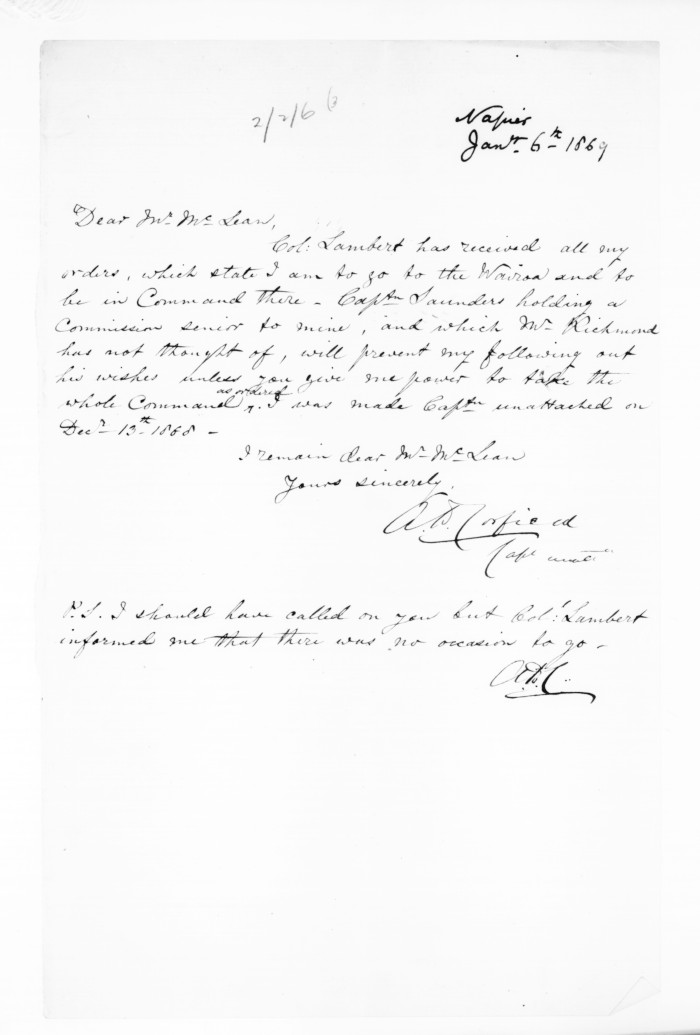 2/2/66
Napier
Jany. 6th 1869
Dear Mr. McLean,
Col: Lambert has received all my
orders, which state I am to go to the Wairoa and to
be in Command there - Captn Saunders holding a
Commission senior to mine, and which Mr. Richmond
has not thought of, will prevent my following out
his wishes unless you give me power to take the
as ordered
whole Command. I was made Captn unattached on
Decr. 13th 1868 -
I remain dear Mr. McLean
Yours sincerely,
A.B. Corfield
Capt
P.S. I should have called on you but Col: Lambert
informed me that there was no occasion to go -
A.B.C.